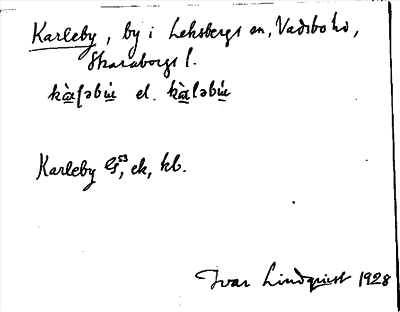 Karleby, by i Leksbergs sn, Vadsbo hd,
Skaraborgs l.
kàɽəbíɩ el. kàləbíɩ
Karleby G⁵³, ek, kb.
Ivar Lindquist 1928